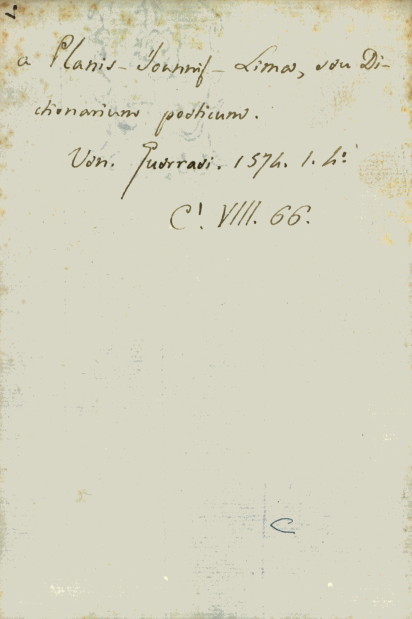 a Planis - Joannis - Lima, seu Di-
ctionarium poeticum.
Ven. Guerraei. 1574. 1. 4º
C! VIII. 66.
C